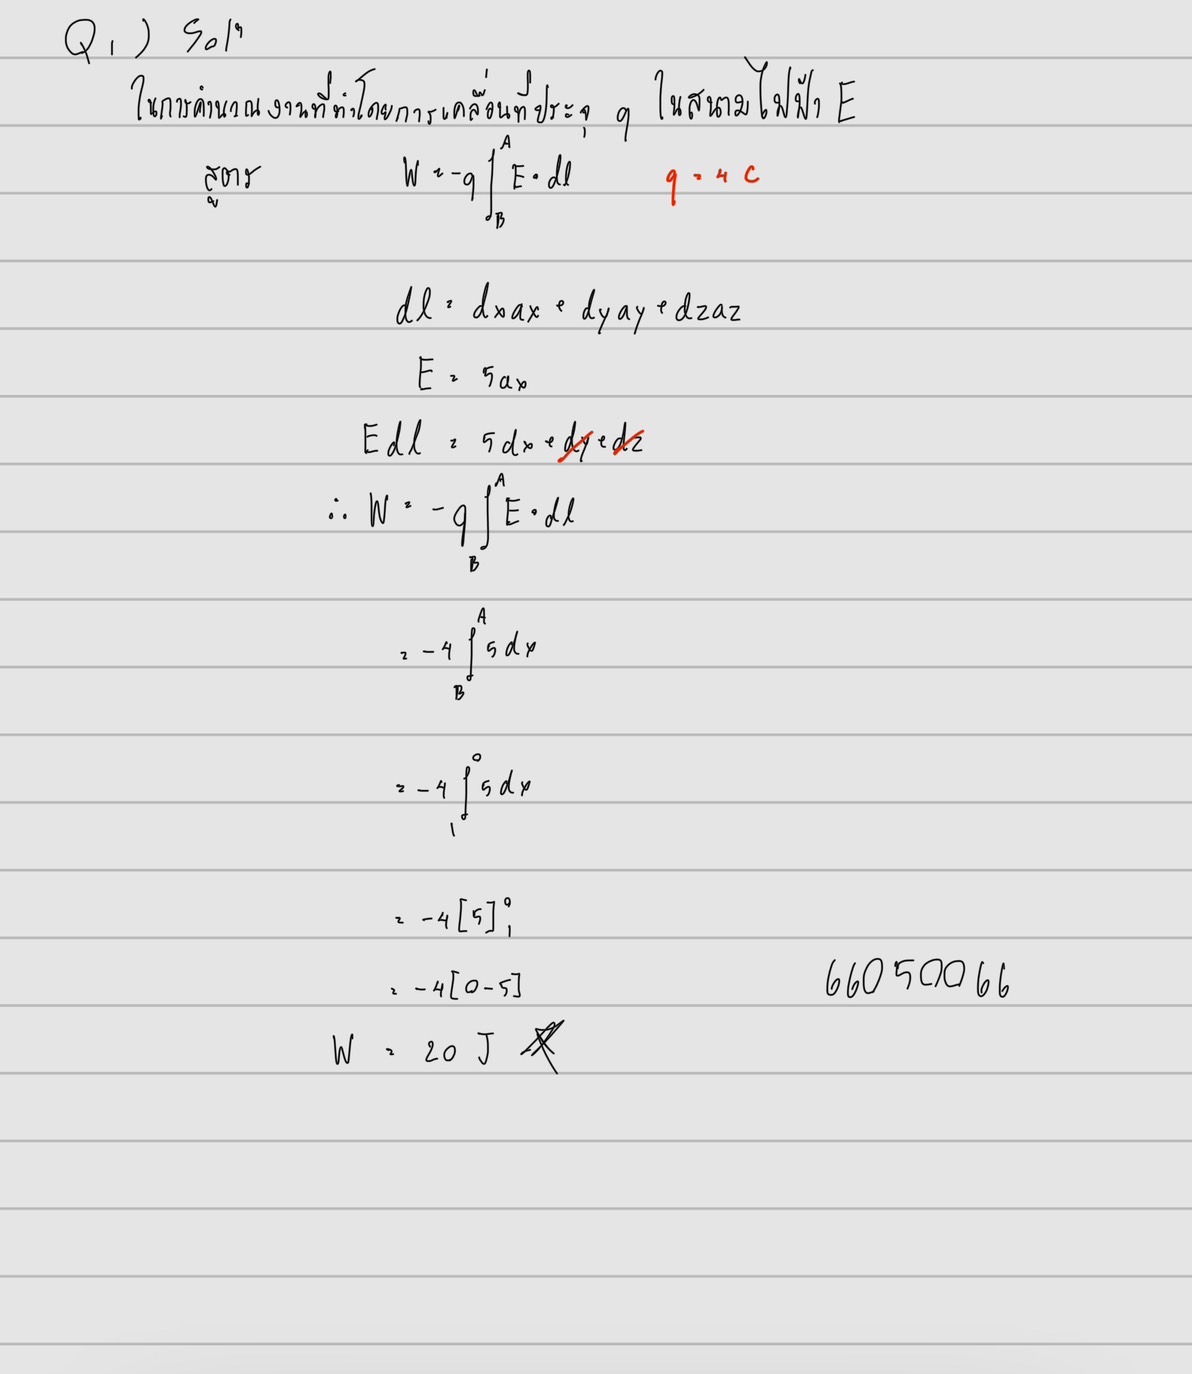 Q1) Solⁿ
ในการคำนวณงานที่ทำโดยการเคลื่อนที่ประจุ q ในสนามไฟฟ้า E
สูตร W = -q ∫_B^A E • dl q = 4 C
dl = dxax + dyay + dzaz
E = 5ax
Edl = 5dx + dy + dz
∴ W = -q ∫_B^A E • dl
= -4 ∫_B^A 5dx
= -4 ∫_1^0 5dx
= -4[5]_1^0
= -4[0-5]
66050066
W = 20 J